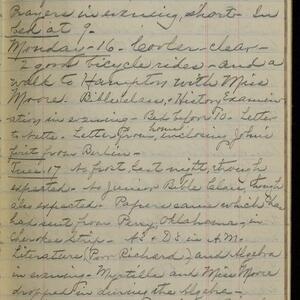 Prayers in evening, short. In
bed at 9.
Monday - 16 - Cooler - clear -
2 good bicycle rides - and a
walk to Hampton with Miss
Moore. Bible class, - History Examin-
ation in evening - Bed before 10. Letter
to Nette. Letter from home, enclosing John's
first from Berlin.
Tues. 17 No frost last night, though
expected. No Junior Bible Class, though
expected. Papers came which
had sent from Perry, Oklahoma, in
Cherokee Strip. A's & D's in A.M.
Literature (Poor Richard) and Algebra
in evening. Myrtilla and Miss Moore
dropped in during the Algebra -